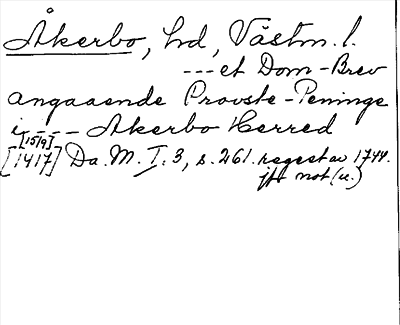 Åkerbo, hd, Västm. l.
--- et Dom-Brev
angaaende Provste-Peninge
i --- Akerbo Herred
[15/9]
[1417] Da. M. I. 3, s. 261. regest av 1744.
jfr not (u.)